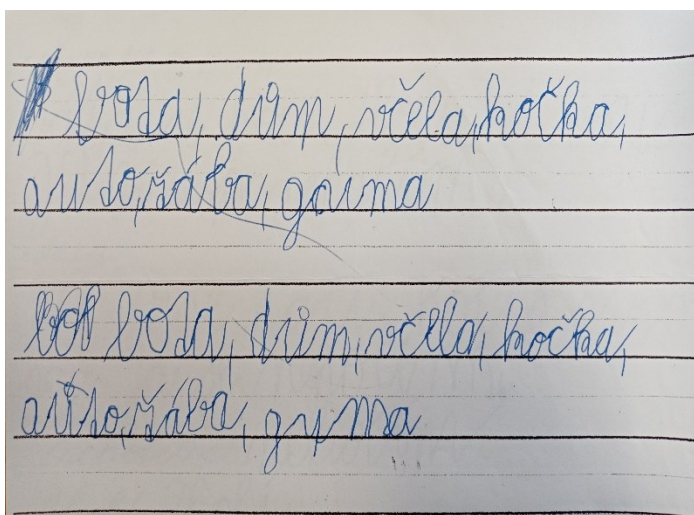 bota, dům, včela, kočka,
auto, žába, guma
bota, dům, včela, kočka,
auto, žába, guma